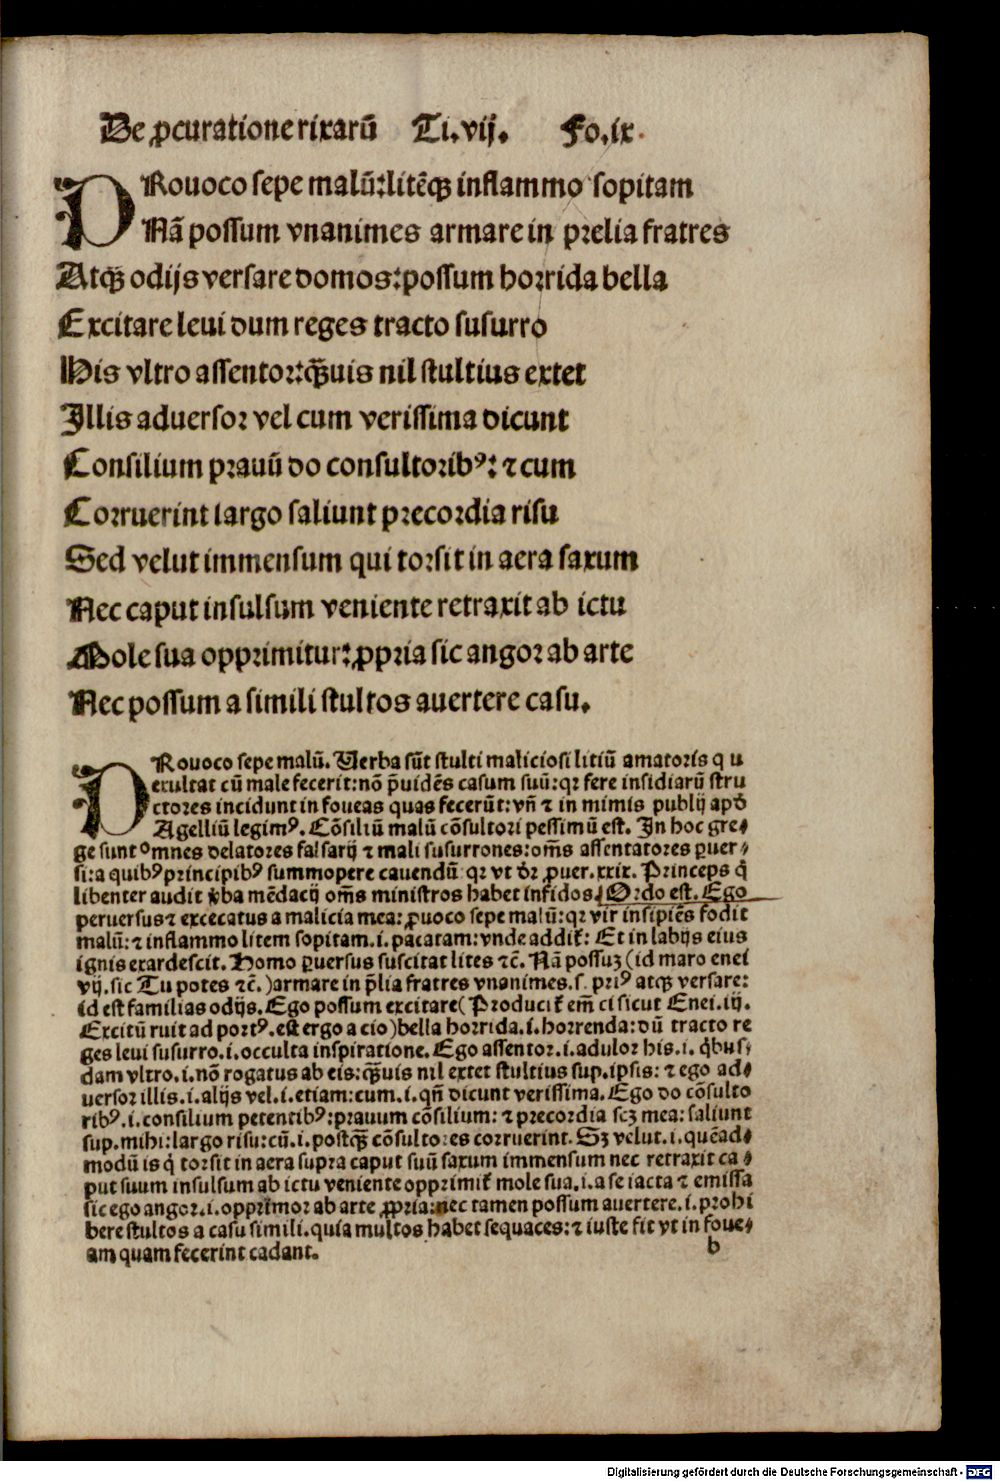 De ꝓcuratione rixarū Ti.vij. Fo.ix.
PRouoco sepe malū:litēqꝫ inflammo sopitam
Nā possum vnanimes armare in prelia fratres
Atqꝫ odijs versare domos:possum horrida bella
Excitare leui dum reges tracto susurro
His vltro assentor:qꝫ̄uis nil stultius extet
Illis aduersor vel cum verissima dicunt
Consilium prauū do consultoribꝰ: ⁊ cum
Corruerint largo saliunt precordia risu
Sed velut immensum qui torsit in aera saxum
Nec caput insulsum veniente retraxit ab ictu
Mole sua opprimitur:ꝓpria sic angor ab arte
Nec possum a simili stultos auertere casu.
PRouoco sepe malū. Verba sūt stulti maliciosi litiū amatoris q u
exultat cū male fecerit:nō p̄uidēs casum suū:qꝛ fere insidiarū stru
ctores incidunt in foueas quas fecerūt:vn̄ ⁊ in mimis publij apd̓
Agelliū legimꝰ. Cōsiliū malū cōsultori pessimū est. In hoc gre⸗
ge sunt omnes delatores falsarij ⁊ mali susurrones:om̄s assentatores ꝑuer⸗
si:a quibꝰ principibꝰ summopere cauendū qꝛ vt dr̄ ꝓuer.xxix. Princeps q̇
libenter audit v̓ba mēdacij om̄s ministros habet infidos. Ordo est. Ego
peruersus ⁊ excecatus a malicia mea: ꝓuoco sepe malū: qꝛ vir insipiēs fodit
malū: ⁊ inflammo litem sopitam.i.pacatam:vnde addit̄: Et in labijs eius
ignis exardescit. Homo ꝑuersus suscitat lites ⁊c̄. Nā possuꝫ (id maro enei
vij.sic Tu potes ⁊c̄.)armare in p̄lia fratres vnanimes.s. priꝰ atqꝫ versare:
id est familias odijs. Ego possum excitare( Producit̄ em̄ ci sicut Enei.ij.
Excitū ruit ad portꝰ.est ergo a cio)bella horrida.i.horrenda:dū tracto re
ges leui susurro.i.occulta inspiratione. Ego assentor.i.adulor his.i. q̇bus⸗
dam vltro.i.nō rogatus ab eis:qꝫ̄uis nil extet stultius sup.ipsis: ⁊ ego ad⸗
uersor illis.i.alijs vel.i.etiam:cum.i.qn̄ dicunt verissima. Ego do cōsulto
ribꝰ.i.consilium petentibꝰ:prauum cōsilium: ⁊ precordia scꝫ mea: saliunt
sup.mihi:largo risu:cū.i.postqꝫ̄ cōsultores corruerint. Sꝫ velut.i.quēad⸗
modū is q̇ torsit in aera supra caput suū saxum immensum nec retraxit ca⸗
put suum insulsum ab ictu veniente opprimit̄ mole sua.i.a se iacta ⁊ emissa
sic ego angor.i.opprimor ab arte ꝓpria:nec tamen possum auertere.i.prohi
bere stultos a casu simili.quia multos habet sequaces: ⁊ iuste fit vt in foue⸗
am quam fecerint cadant.
b
Digitalisierung gefördert durch die Deutsche Forschungsgemeinschaft - DFG